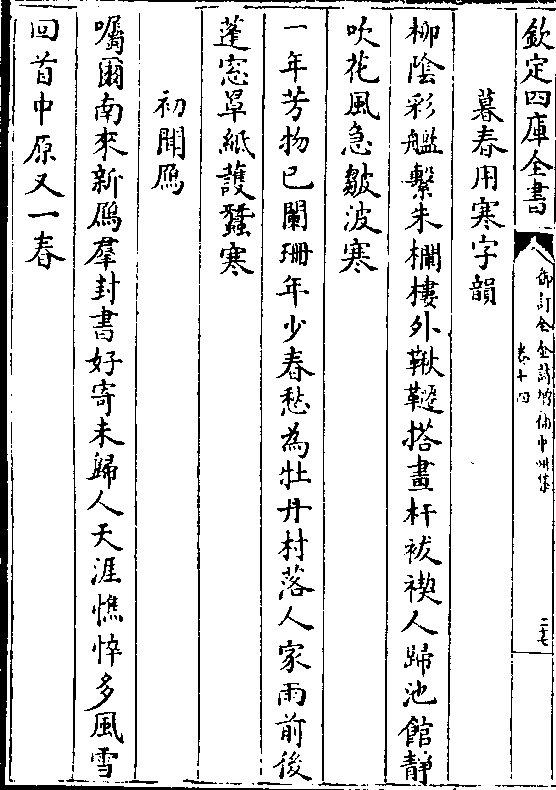 欽定四庫全書
御訂全金詩增補中州集
卷十四
二七
暮春用寒字韻
柳陰彩艦繫朱欄樓外鞦韆搭畫杆祓禊人歸池館靜
吹花風急皺波寒
一年芳物已闌珊年少春愁為牡丹村落人家雨前後
蓬窓草紙護蠶寒
初聞鴈
囑爾南來新鴈羣封書好寄未歸人天涯憔悴多風雪
回首中原又一春